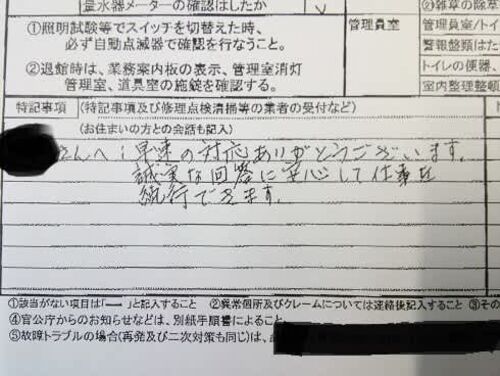 量水器メーターの確認はしたか
レ
②雑草の除草
①照明試験等でスイッチを切替えた時、
必ず自動点滅器で確認を行なうこと。
②退館時は、業務案内板の表示、管理室消灯
管理室、道具室の施錠を確認する。
管理員室
管理員室/トイ
警報盤類はた
トイレの便器、
室内整理整頓
特記事項
(特記事項及び修理点検清掃等の業者の受付など)
(お住まいの方との会話も記入)
さんへ;早速の対応ありがとうございます。
誠実な回答に安心して仕事を
続行できます。
①該当がない項目は「――」と記入すること ②異常個所及びクレームについては連絡後記入すること ③その
④官公庁からのお知らせなどは、別紙手順書によること。
⑤故障トラブルの場合(再発及び二次対策も同じ)は、